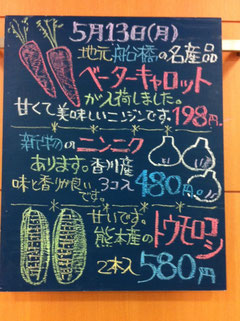 5月13日(月)
地元船橋の名産品
ベーターキャロット
が入荷しました。
甘くて美味しいニンジンです。198円。
新物のニンニク
あります。香川産
味と香りが良い 3コ入 480円。
です。
甘いです。
熊本産のトウモロコシ
2本入 580円